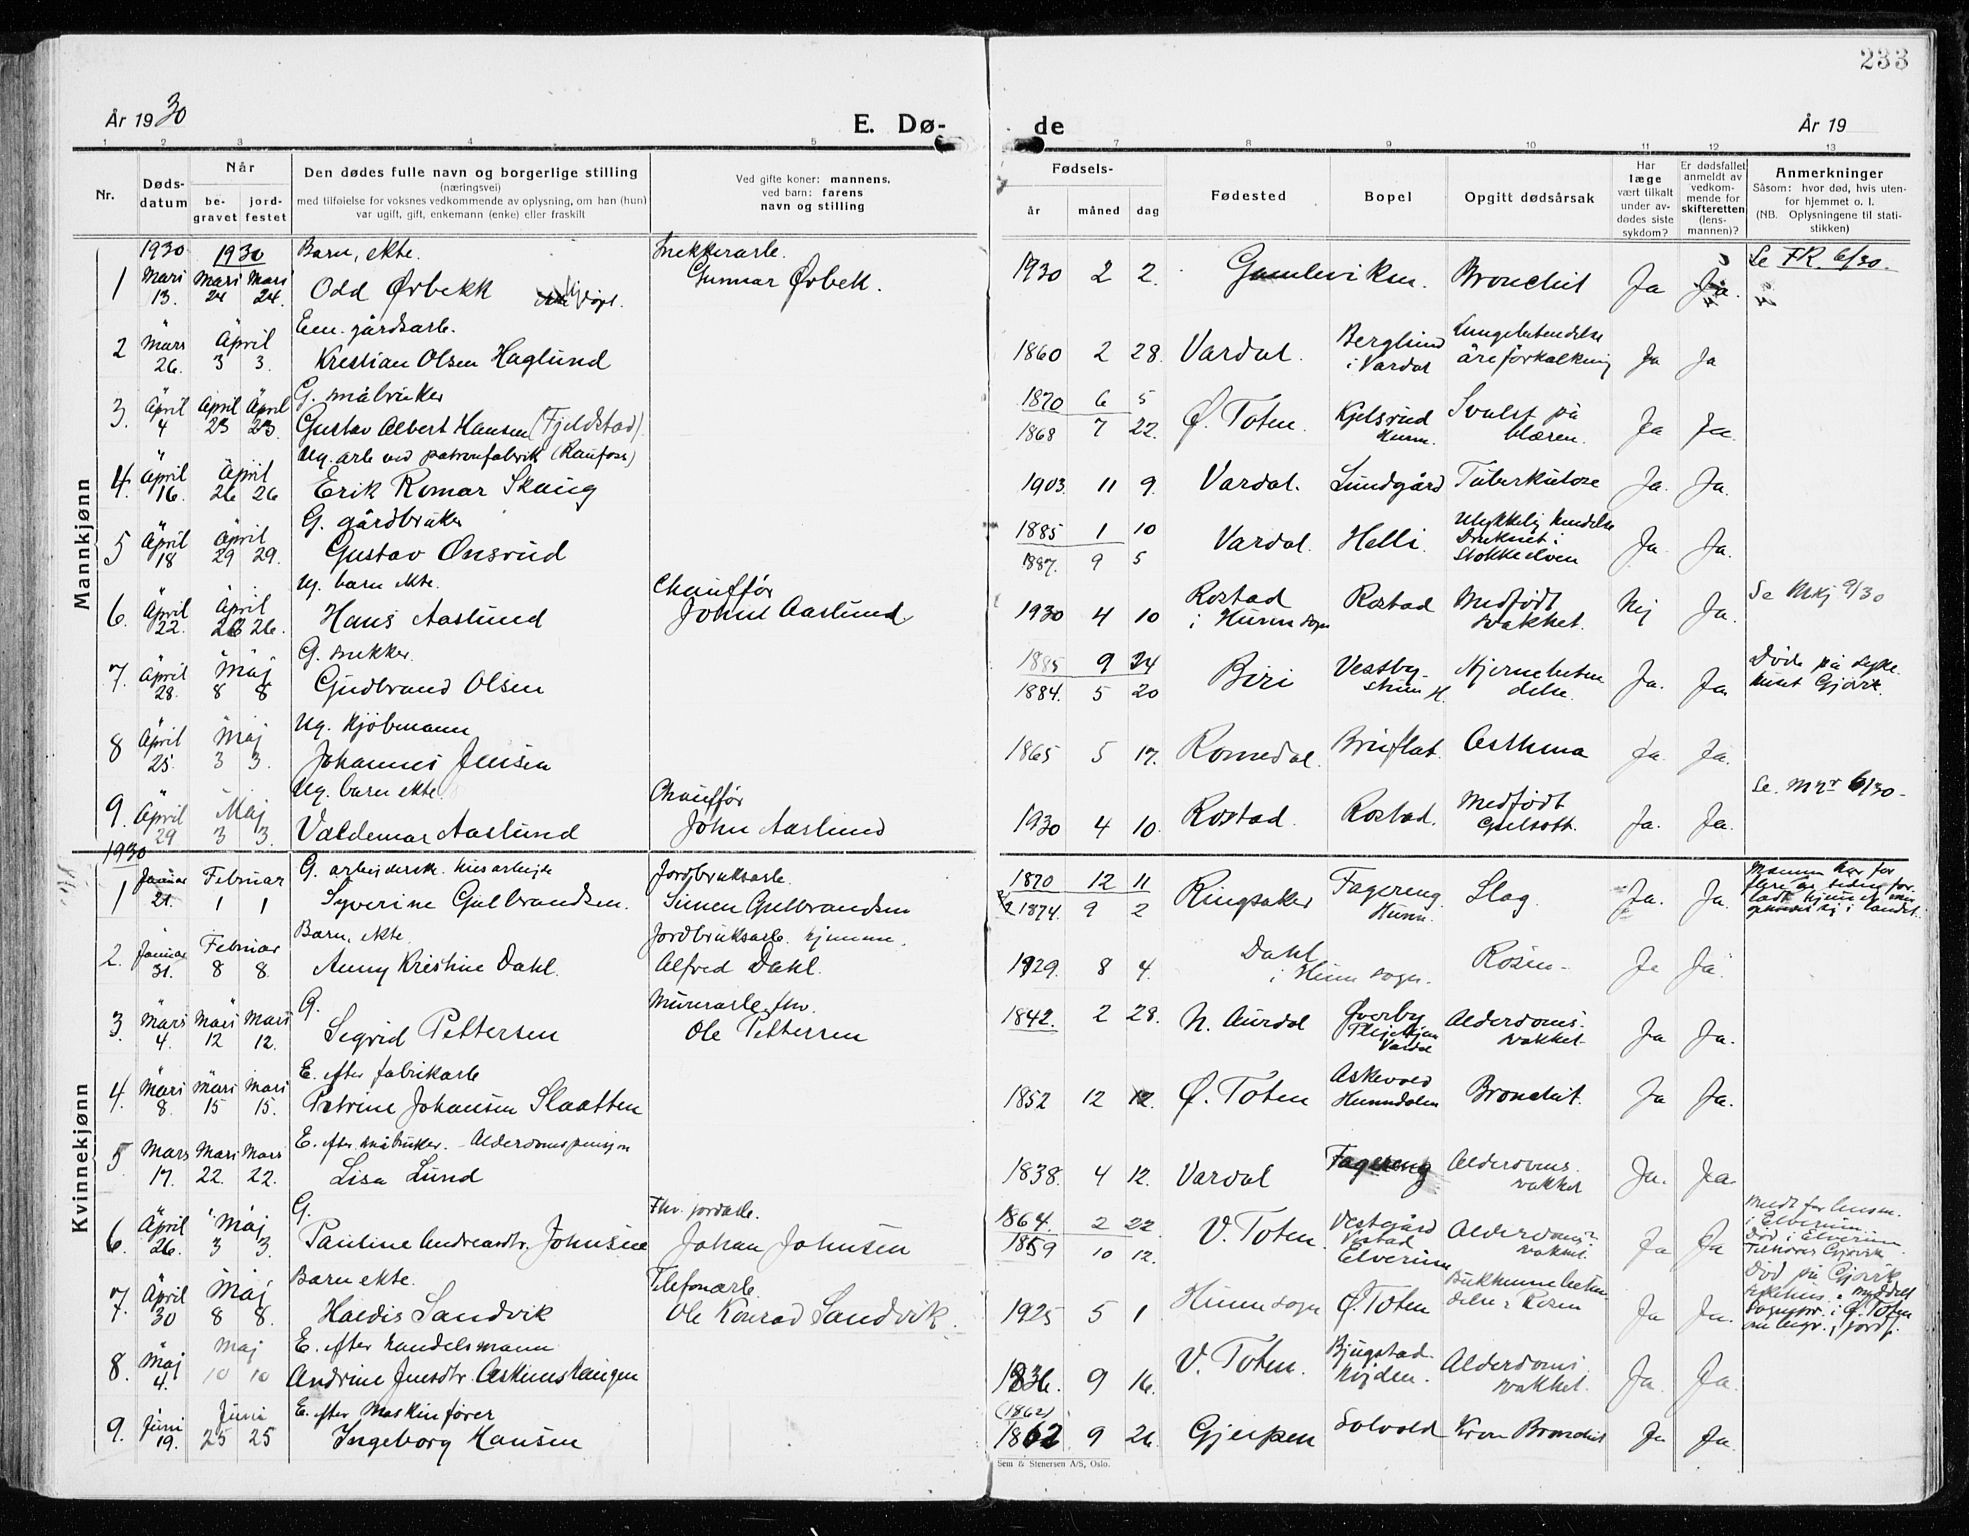 233
År 1930
E. Dø-
de
År 19
1 2 3 4 5 7 8 9 10 11 12 13
Nr.
Døds-
datum
Når
be-
gravet
jord-
festet
Den dødes fulle navn og borgerlige stilling
(næringsvei)
med tilføielse for voksnes vedkommende av oplysning, om han (hun)
var ugift, gift, enkemann (enke) eller fraskilt
Ved gifte koner: mannens,
ved barn: farens
navn og stilling
Fødsels-
år måned dag
Fødested
Bopel
Opgitt dødsårsak
Har
læge
vært tilkalt
under av-
dødes siste
sykdom?
Er dødsfallet
anmeldt av
vedkom-
mende for
skifteretten
(lens-
mannen)?
Anmerkninger
Såsom: hvor død, hvis uten-
for hjemmet o. l.
(NB. Oplysningene til stati-
stikken)
Mannkjønn
1930 1930 Barn, ekte. Snekkerarb. Se FR. 6/30.
1 Mars 13. Mars 24 Mars 24. Odd Ørbekk døpt. Gunnar Ørbek. 1930 2 2. Bronchit Ja Ja.
Em. gårdsarb.
2 Mars 26. April 3 3. Kristian Olsen Haglund 1860 2 28. Vardal. Berglund i Vardal Lungebetendelse åreforkalkning Ja Ja
G. småbruker
3. April 4 April 23 April 23. Gustav Albert Hansen (Fjeldstad) 1870 6 5 1868 7 22. Ø. Toten. Kjelsrud Hunn. Svulst på blæren. Ja Ja.
Ug. arb. ved patronfabrik (Raufoss)
4. April 16. April 26 26 Erik Romar Skaug 1903. 11 9. Vardal. Lundgård Tuberkulose Ja. Ja.
G. gårdbruker
5 April 18 April 29 29. Gustav Onsrud 1885 1 10 1887. 9 5 Vardal. Helli. Ulykkelig hendelse Druknet i Stokkeelven Ja. Ja.
Ug. barn ekte. Chauffør Se Mkj 9/30
6. April 22. April 26 26. Hans Aaslund John Aaslund. 1930 4 10 Rostad i Hunn sogn Rostad Medfødt svakhet. Nej Ja.
G. snekker.
7. April 28. Maj 8 8 Gudbrand Olsen 1885 9 24 1884. 5 20 Biri Hjernebeten delse. Ja. Ja Døde på syke huset Gjøvik.
Ug. Kjøbmann
8 April 25. Maj 3 3. Johannes Jensen 1865 5 17. Romedal. Bruflat. Asthma Ja. Ja.
Ug. barn ekte. Chauffør Se. M nr 6/30-
9. April 29 Maj 3 3. Valdemar Aaslund John Aaslund 1930 4 10. Rostad. Rostad. Medfødt Gulsott. Ja. Ja.
Kvinnekjønn
1930
1 Januar 21. Februar 1 1 Syverine Gulbrandsen. Jordbruksarb. Simen Gulbrandsen 1870 12 11 1874. 9 2 Ringsaker Fagereng Hunn. Slag. Ja. Ja. Mannen har for flere år siden for- latt hjemmet
Barn, ekte. Jordbruksarb. hjemme.
2. Januar 31. Februar 8 8. Anny Kristine Dahl. Alfred Dahl. 1929. 8 4. Dahl i Hunn sogn. Rosen Ja Ja
G. Murerarb. fhv.
3 Mars 4. Mars 12 Mars 12. Sigrid Pettersen Ole Pettersen 1842. 2 28. N. Aurdal Øverby Plejehjem Vardal Alderdoms- svakhet. Ja Ja.
E. efter fabrikarb.
4. Mars 8. Mars 15 Mars 15. Petrine Johansen Slaatten 1852 12 12. Ø. Toten Askevold Hunndalen Bronchit. Ja Ja.
E. efter småbruker. - Alderdomspensjon
5. Mars 17. Mars 22. Mars 22. Lisa Lund 1838. 4 12. Vardal Fagereng Alderdoms. svakhet Ja. Ja.
G. Fhv. jordarb.
6. April 26. Maj 3 3. Pauline Andreasdtr. Johnsen Johan Johnsen 1864. 2 22. 1859 10 12. V. Toten. Vestgård Elverum Alderdoms- svakhet. Ja Ja i Elverum. Død i Elverum. Tilhører Gjøvik
Barn ekte. Telefonarb.
7. April 30 Maj 8 8. Haldis Sandvik Ole Konrad Sandvik. 1925 5 1 Hunn sogn Ø. Toten Bukhinnebeten delse: Rosen Ja Ja. Død på Gjøvik sykehus. Meddelt sognepr. i Ø. Toten om begr. i jordf.
E. efter handelsmann
8. Maj 4. Maj 10 10 Andrine Jensdtr. Askimshaugen 1836. 9 16. V. Toten. Bjugstad højden. Alderdoms svakhet. Ja. Ja.
E. efter Maskinfører
9. Juni 19. Juni 25 25 Ingeborg Hansen (1862) 1862 9 26 Gjerpen Solvold Kron Bronchit Ja Ja.
Sem & Stenersen A/S, Oslo.